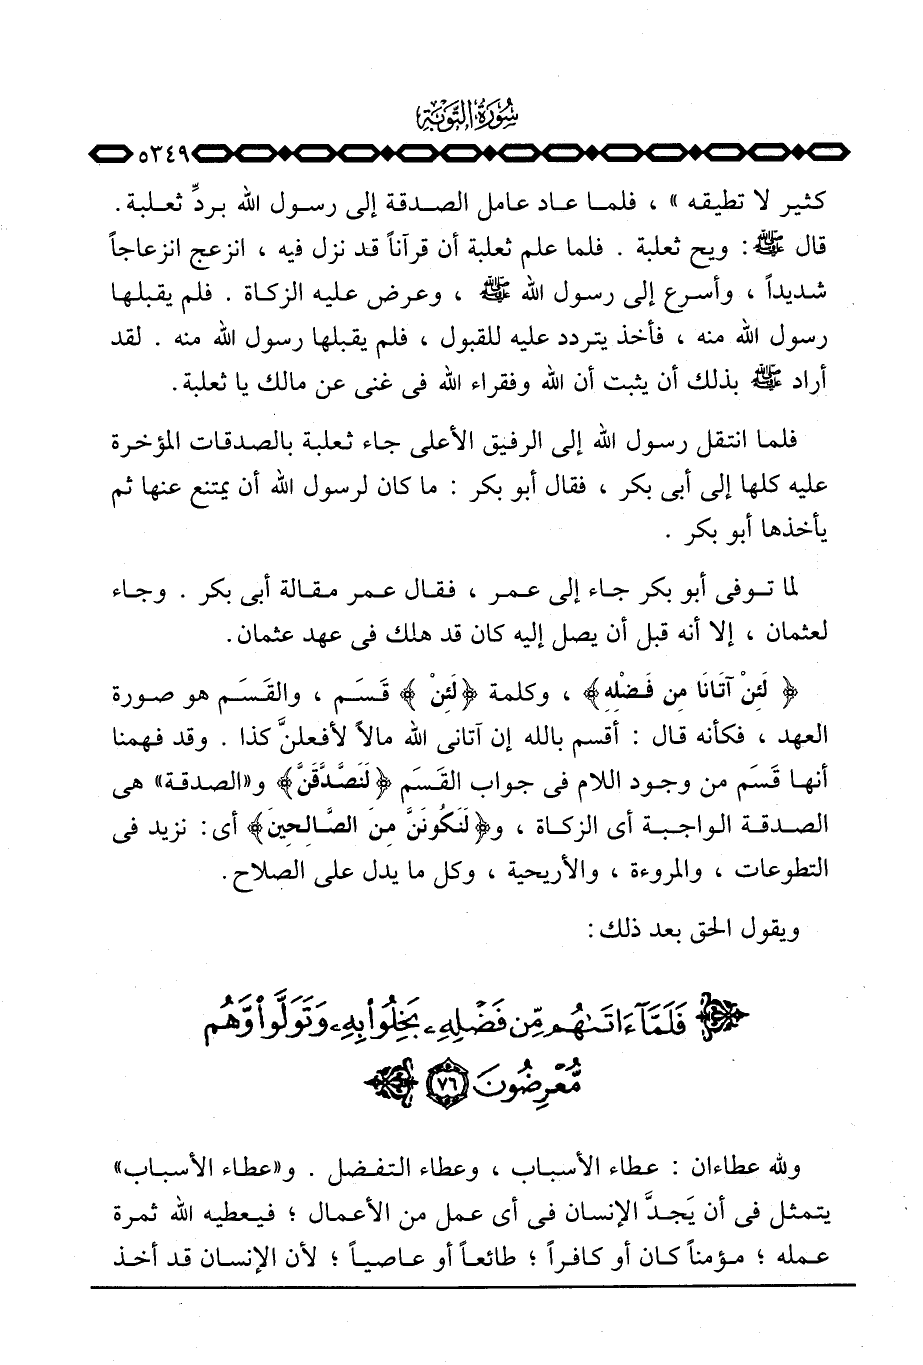 سُورَةُ التَّوبَة
٥٣٤٩
كثير لا تطيقه » ، فلمـا عـاد عامل الصـدقة إلى رسول الله بردِّ ثعـلبة .
قال ﷺ : ويح ثعلبة . فلما علم ثعلبة أن قرآناً قد نزل فيه ، انزعج انزعاجاً
شديداً ، وأسرع إلى رسول الله ﷺ ، وعرض عليه الزكاة . فلم يقبلها
رسول الله منه ، فأخذ يتردد عليه للقبول ، فلم يقبلها رسول الله منه . لقد
أراد ﷺ بذلك أن يثبت أن الله وفقراء الله فى غنى عن مالك يا ثعلبة .
فلما انتقل رسول الله إلى الرفيق الأعلى جاء ثعلبة بالصدقات المؤخرة
عليه كلها إلى أبى بكر ، فقال أبو بكر : ما كان لرسول الله أن يمتنع عنها ثم
يأخذها أبو بكر .
لما تـوفى أبو بكر جـاء إلى عـمر ، فقـال عـمر مقـالة أبى بكر . وجـاء
لعثمان ، إلا أنه قبل أن يصل إليه كان قد هلك فى عهد عثمان .
﴿ لَئِنْ آتَانَا مِن فَضْلِهِ﴾ ، وكلمة ﴿لَئِنْ ﴾ قَسَم ، والقَسَم هو صورة
العهد ، فكأنه قال : أقسم بالله إن آتانى الله مالاً لأفعلنَّ كذا . وقد فهمنا
أنهـا قَسَم من وجـود اللام فى جواب القَسَم ﴿لَنَصَّدَّقَنَّ﴾ و«الصدقة» هى
الصـدقة الواجبـة أى الزكاة ، و﴿لَنَكُونَنَّ مِنَ الصَّالِحِينَ﴾ أى : نزيد فى
التطوعات ، والمروءة ، والأريحية ، وكل ما يدل على الصلاح .
ويقول الحق بعد ذلك :
﴿ فَلَمَّآ ءَاتَىٰهُم مِّن فَضْلِهِۦ بَخِلُوا۟ بِهِۦ وَتَوَلَّوا۟ وَّهُم
مُّعْرِضُونَ ٧٦ ﴾
ولله عطاءان : عطاء الأسباب ، وعطاء التفضل . و«عطاء الأسباب»
يتمثل فى أن يَجدَّ الإنسان فى أى عمل من الأعمال ؛ فيعطيه الله ثمرة
عـمله ؛ مؤمناً كان أو كافراً ؛ طائعاً أو عاصياً ؛ لأن الإنسان قد أخذ